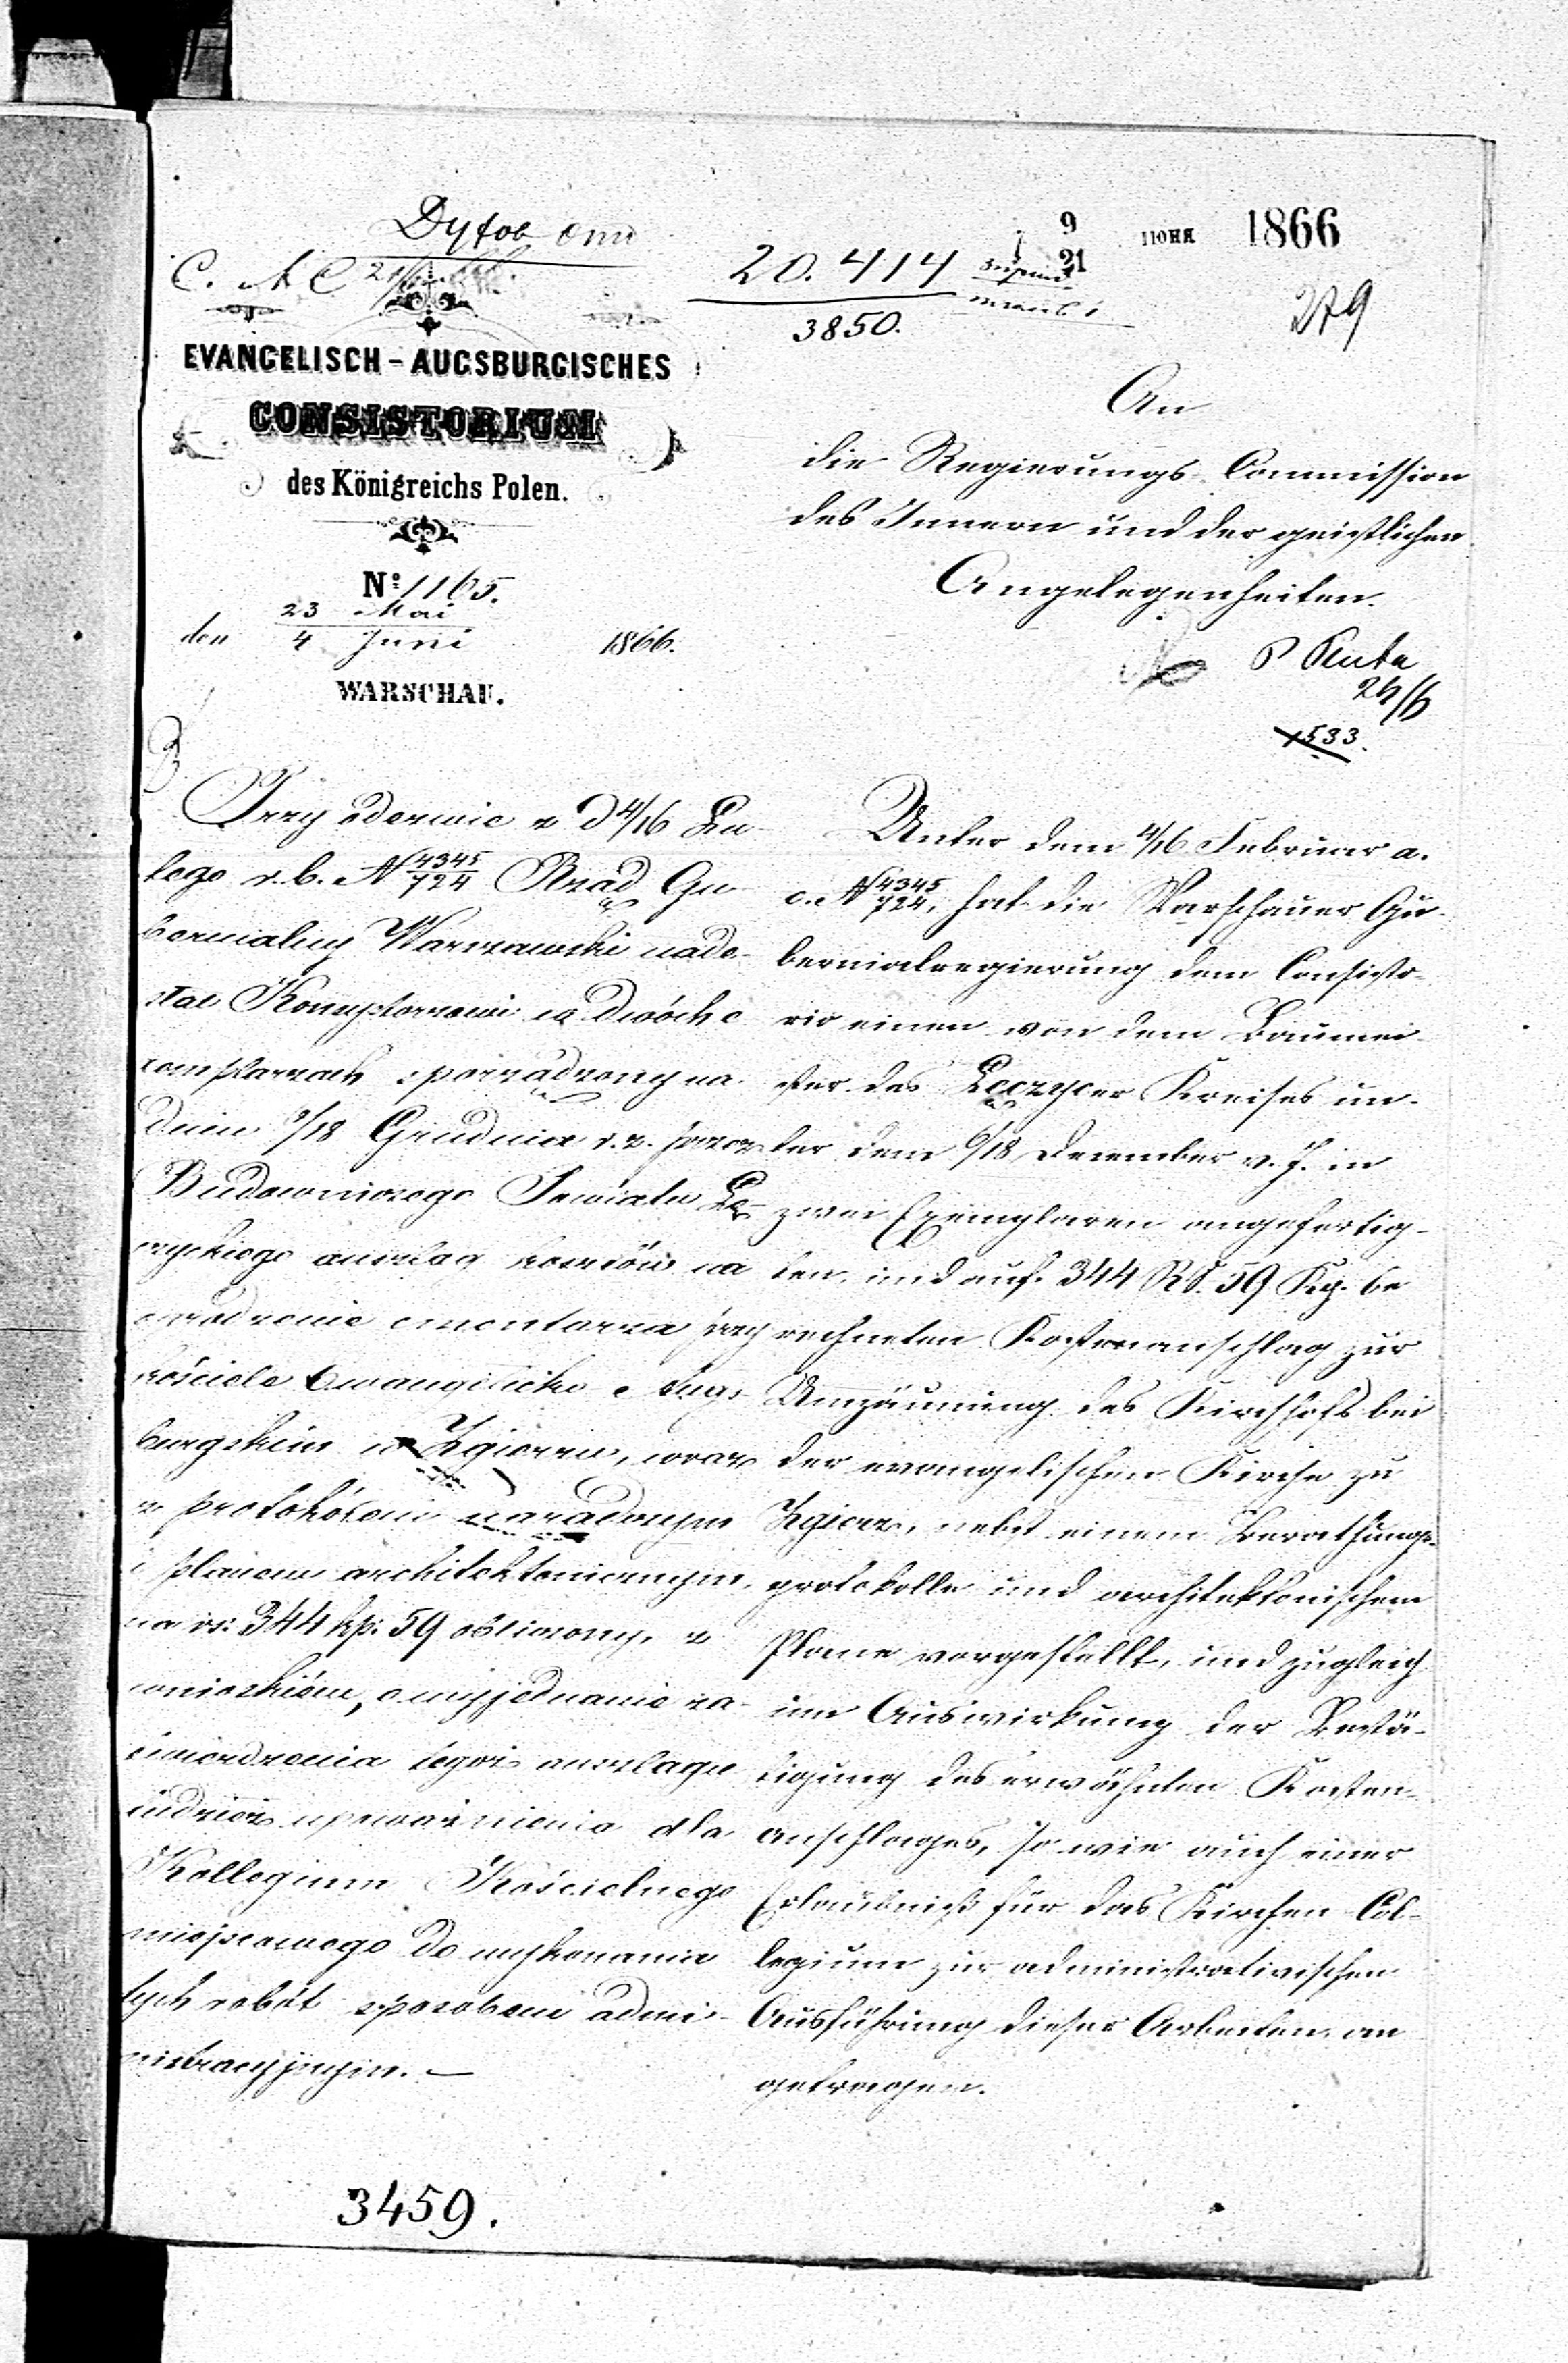 9
21
1866
20.414
3850.
279
EVANGELISCH-AUGSBURGISCHES
CONSISTORIUM
des Königreichs Polen.
Nº 1165.
den 23 Mai
4 Juni 1866.
WARSCHAU.
An
die Regierungs-Commission
des Innern und der geistlichen
Angelegenheiten.
1533.
Przy odezwie z d 4/16 Lu-
tego r.b. N 4345/724 Rząd Gu-
bernialny Warszawski nade-
słał Konsystorzowi w dwóch e
zemplarzach sporządzony na
dniu 6/18 Grudnia r.z. przez
Budowniczego Powiatu Łę-
czyckiego anszlag kosztów na
ogrodzenie cmentarza przy
kościele Ewangelicko Augs-
burgskim w Zgierzu, wraz
z protokółem naradczym
i planem architektonicznym,
na rs: 344 kp: 59 obliczony, z
wnioskiem, o wyjednanie za-
twierdzenia tegoż anszlagu
tudzież upoważnienia dla
Kollegium Kościelnego
miejscowego do wykonania
tych robót sposobem admi-
nistracyjnym. —
Unter dem 4/16 Februar a.
c. N 4345/724, hat die Warschauer Gu-
bernialregierung dem Consisto-
rio einen von dem Baumei-
ster des Łęczycer Kreises un-
ter dem 6/18 December v. J. in
zwei Exemplaren angefertig-
ten und auf 344 RS. 59 Kp. be
rechneten Kostenanschlag zur
Umzäunung des Kirchhofs bei
der evangelischen Kirche zu
Zgierz, nebst einem Berathungs-
protokolle und architektonischem
Plane vorgestellt, und zugleich
um Auswirkung der Bestä-
tigung des erwähnten Kosten-
anschlages, so wie auch einer
Erlaubniß für das Kirchen-Col-
legium zur administrativischen
Ausführung dieser Arbeiten an
getragen.
3459.